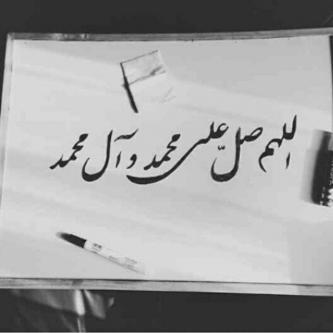 اللهم صلّ علی محمد و آل محمد